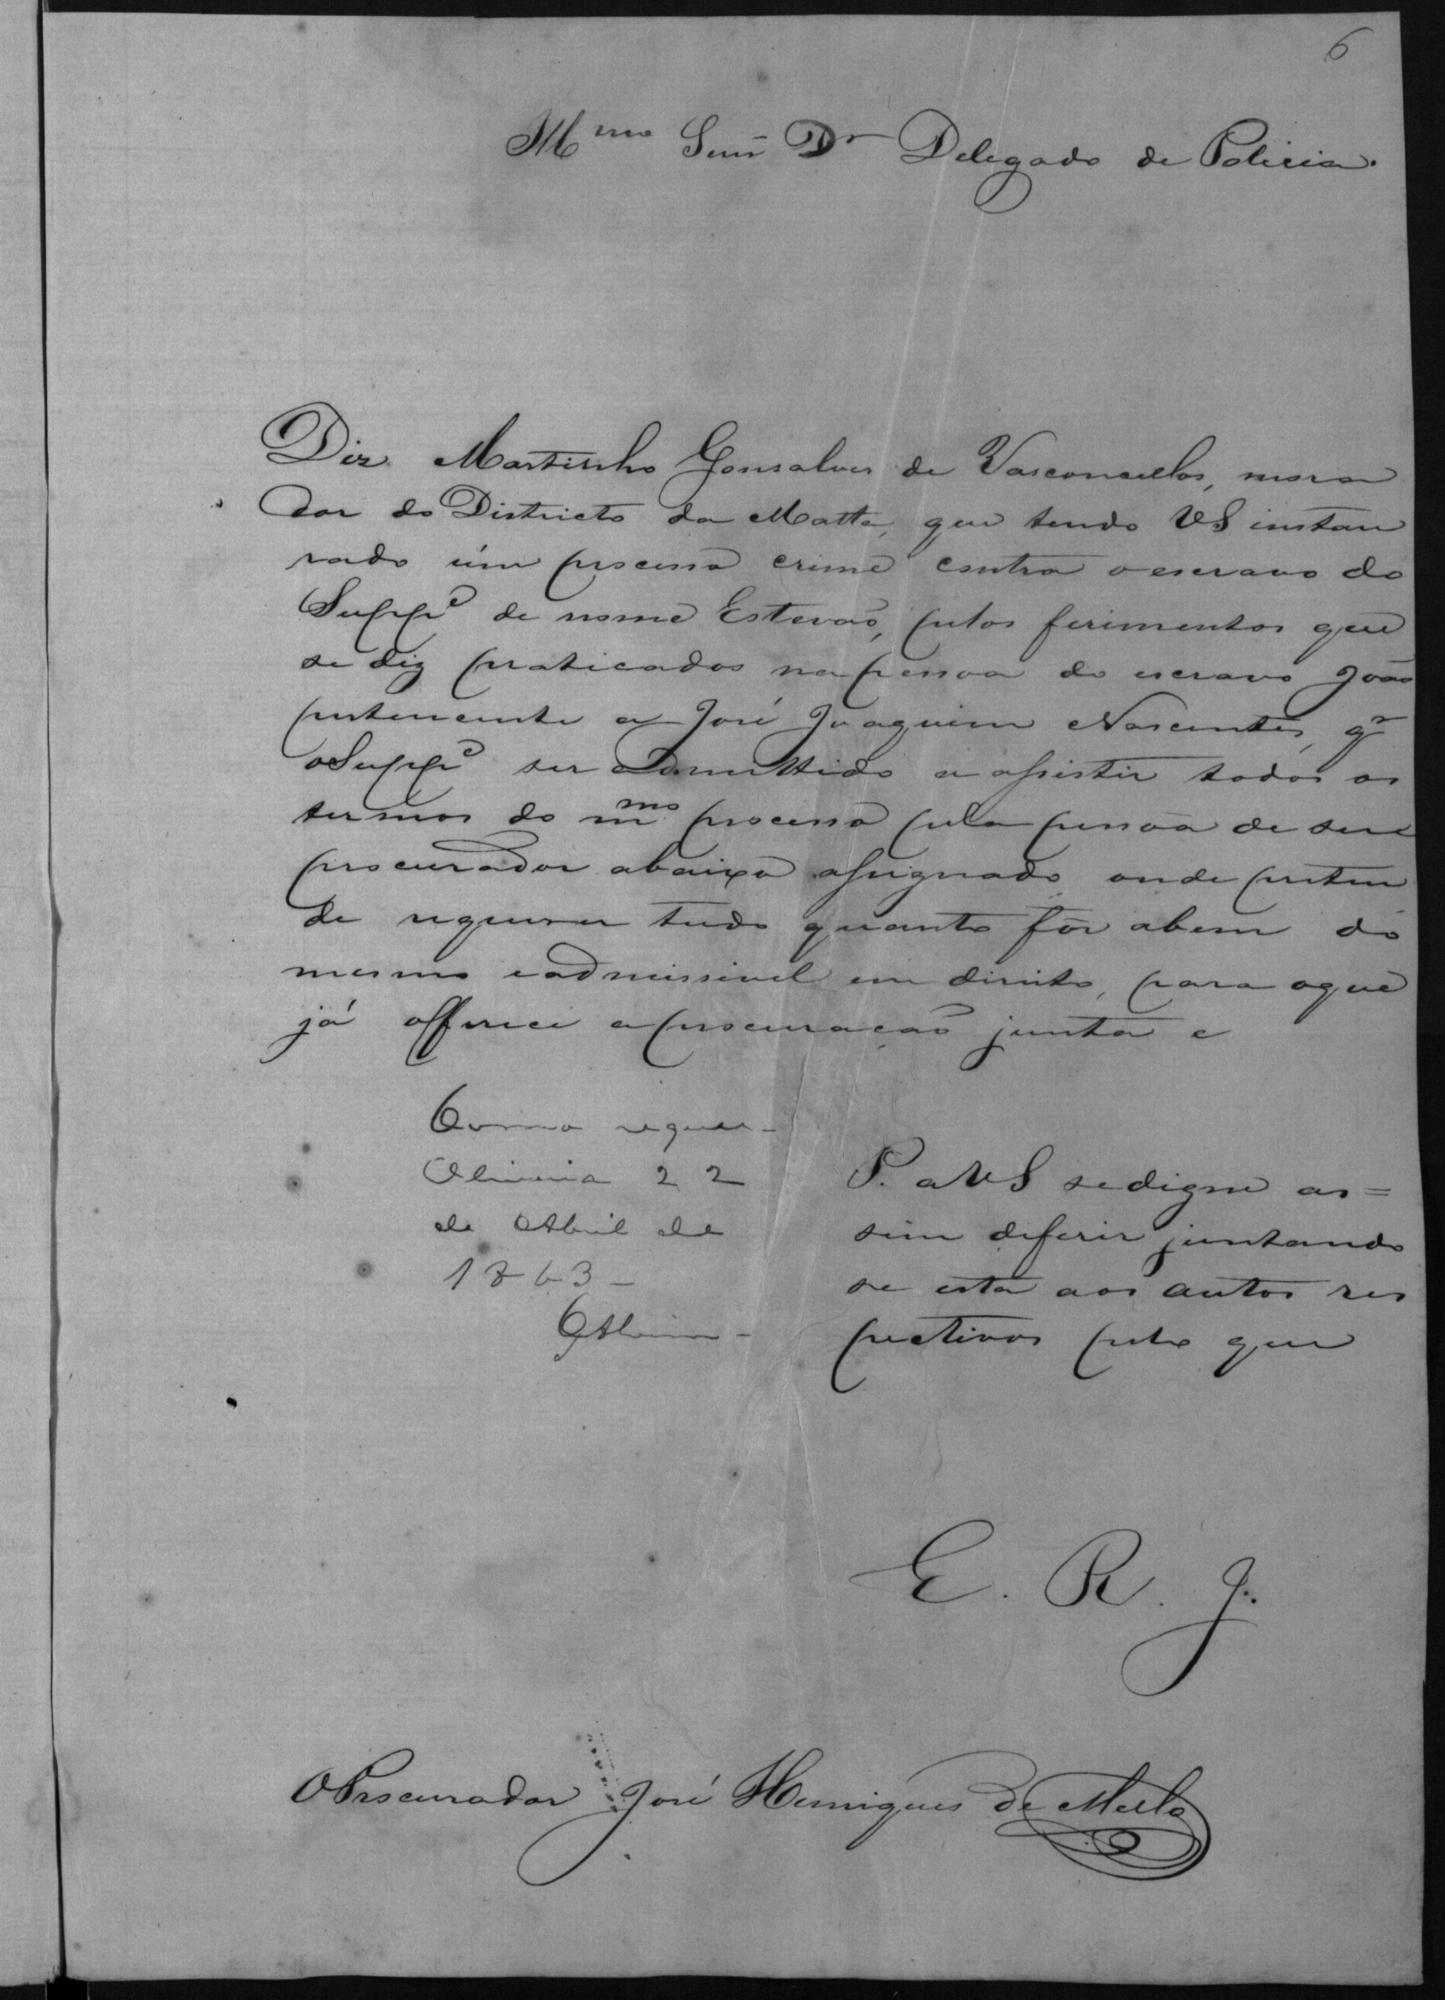 6
Illmo Senr Dr Delegado de Policia.
Diz Martinho Gonsalves de Vasconcellos, mora
dor do Districto da Matta, que tendo VS instau
rado úm processo crime contra o escravo do
Suppe de nome Estevaõ, pelos ferimentos que
se diz praticados na pessoa do escravo João
pertencente a José Joaquim Nascentes, qr
o Suppe ser admittido a assistir todos os
termos do mmo processo pela pessoa de seu
procurador abaixo assignado onde preten
de requerer tudo quanto fôr abem do
mesmo e admissivel em direito, para o que
já offerece a procuraçaõ junta e
Como requer -
Oliveira 22
de Abril de
1863 -
P. a VS se digne as=
sim deferir juntando
se esta aos autos res
pectivos pelo que
E. R. J.
O Procurador José Henriques de Mello